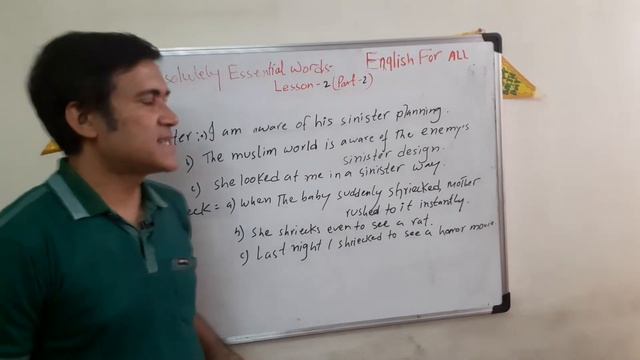 solutely Essential Words- English For ALL
Lesson-2 (Part-2)
ter :- a) I am aware of his sinister planning.
b) The muslim world is aware of the enemy's
sinister design.
c) She looked at me in a sinister way.
eek = a) When the baby suddenly shriecked, mother
rushed to it instantly.
b) She shriecks even to see a rat.
c) Last night I shriecked to see a horror movie.